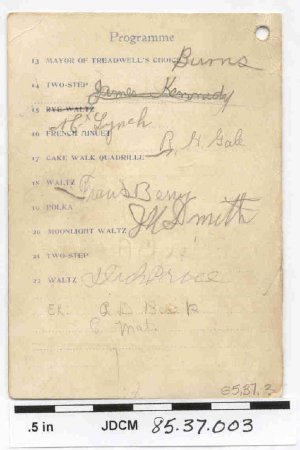 Programme
13 MAYOR OF TREADWELL'S CHOICE Burns
14 TWO-STEP James Kennady
15 RYE WALTZ
Lynch
16 FRENCH MINUET
R. H. Gale
17 CAKE WALK QUADRILLE
18 WALTZ Frank Berry
19 POLKA J M Smith
20 MOONLIGHT WALTZ
21 TWO-STEP
22 WALTZ
Ex.
85.37.3
.5 in JDCM 85.37.003